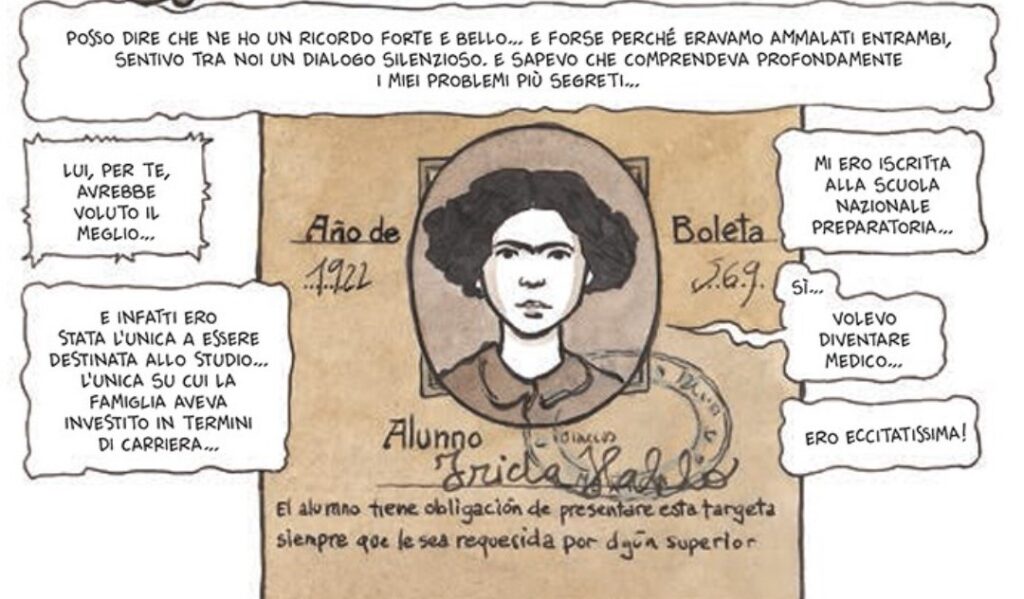 POSSO DIRE CHE NE HO UN RICORDO FORTE E BELLO... E FORSE PERCHÉ ERAVAMO AMMALATI ENTRAMBI,
SENTIVO TRA NOI UN DIALOGO SILENZIOSO. E SAPEVO CHE COMPRENDEVA PROFONDAMENTE
I MIEI PROBLEMI PIÙ SEGRETI...
LUI, PER TE,
AVREBBE
VOLUTO IL
MEGLIO...
MI ERO ISCRITTA
ALLA SCUOLA
NAZIONALE
PREPARATORIA...
E INFATTI ERO
STATA L'UNICA A ESSERE
DESTINATA ALLO STUDIO...
L'UNICA SU CUI LA
FAMIGLIA AVEVA
INVESTITO IN TERMINI
DI CARRIERA...
SÌ...
VOLEVO
DIVENTARE
MEDICO...
ERO ECCITATISSIMA!
Año de
1922
Boleta
569
Alunno
Frida
El alumno tiene obligación de presentare esta targeta
siempre que le sea requerida por superior